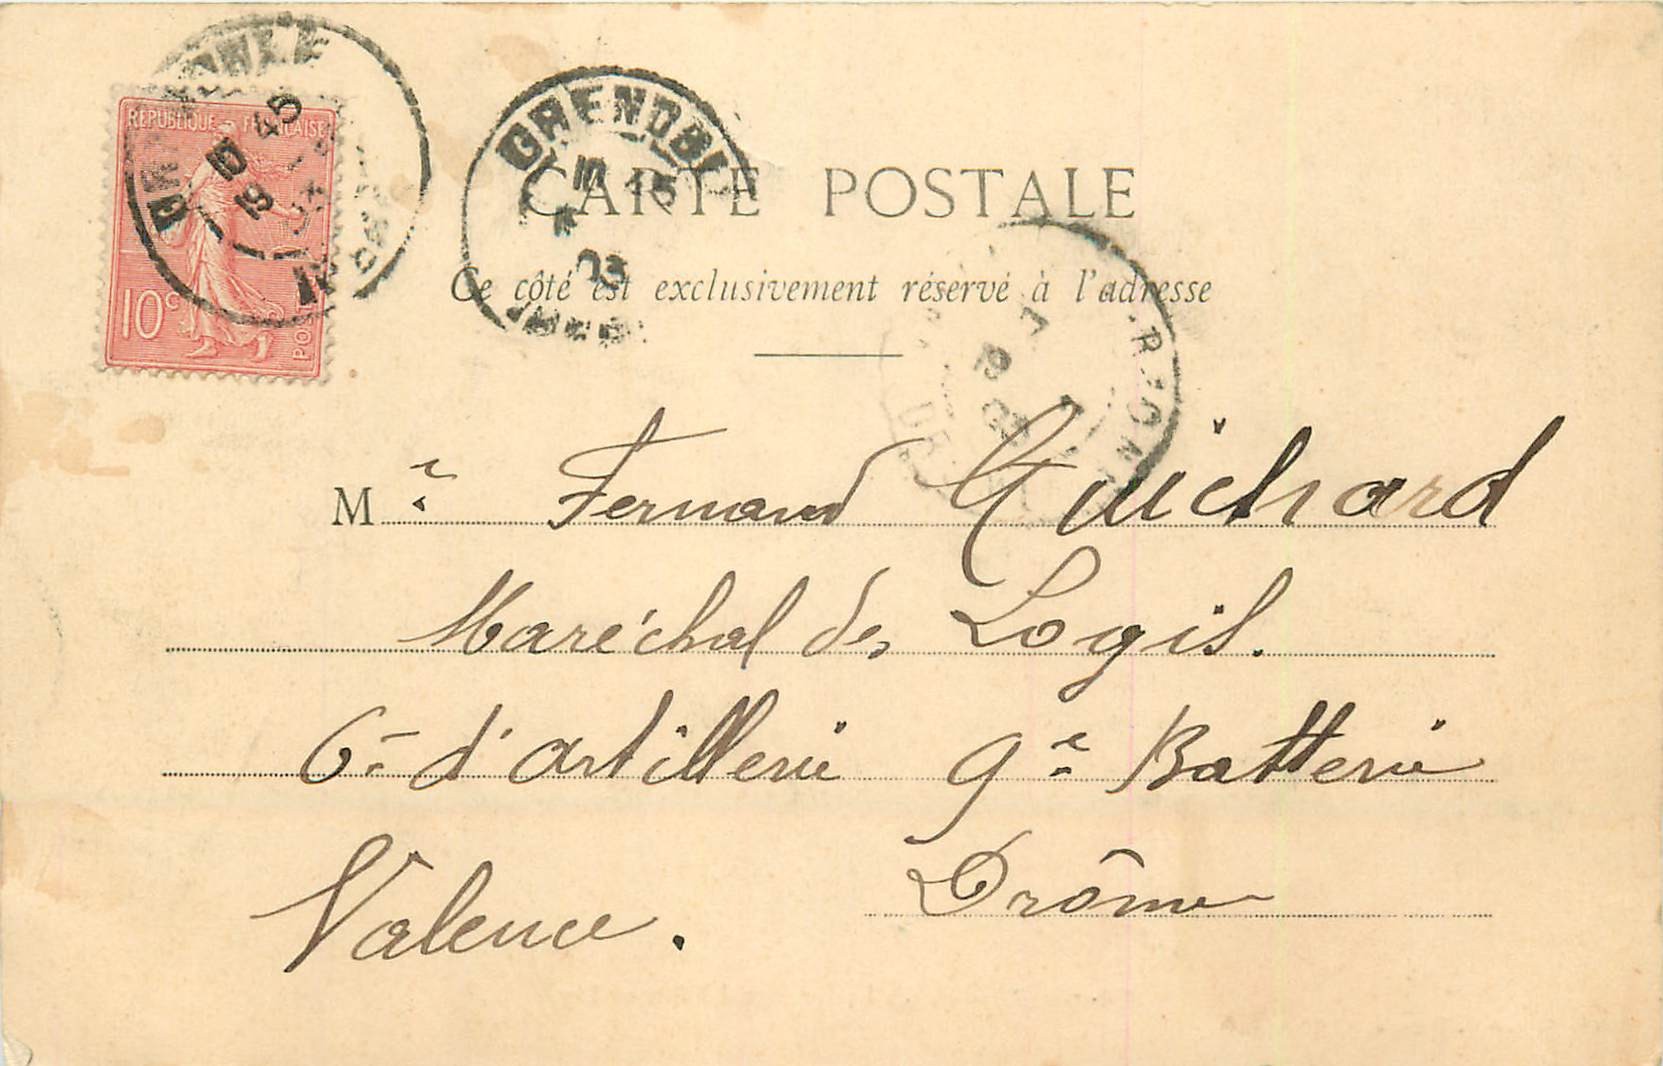 RÉPUBLIQUE FRANÇAISE
10c
POS
GRENOBLE
10 45
19
GRENOBLE
10 45
03
CARTE POSTALE
Ce côté est exclusivement réservé à l'adresse
7
19
03
Mr Fernand Guichard
Maréchal des Logis.
6e d'artillerie 9e Batterie
Valence. Drôme